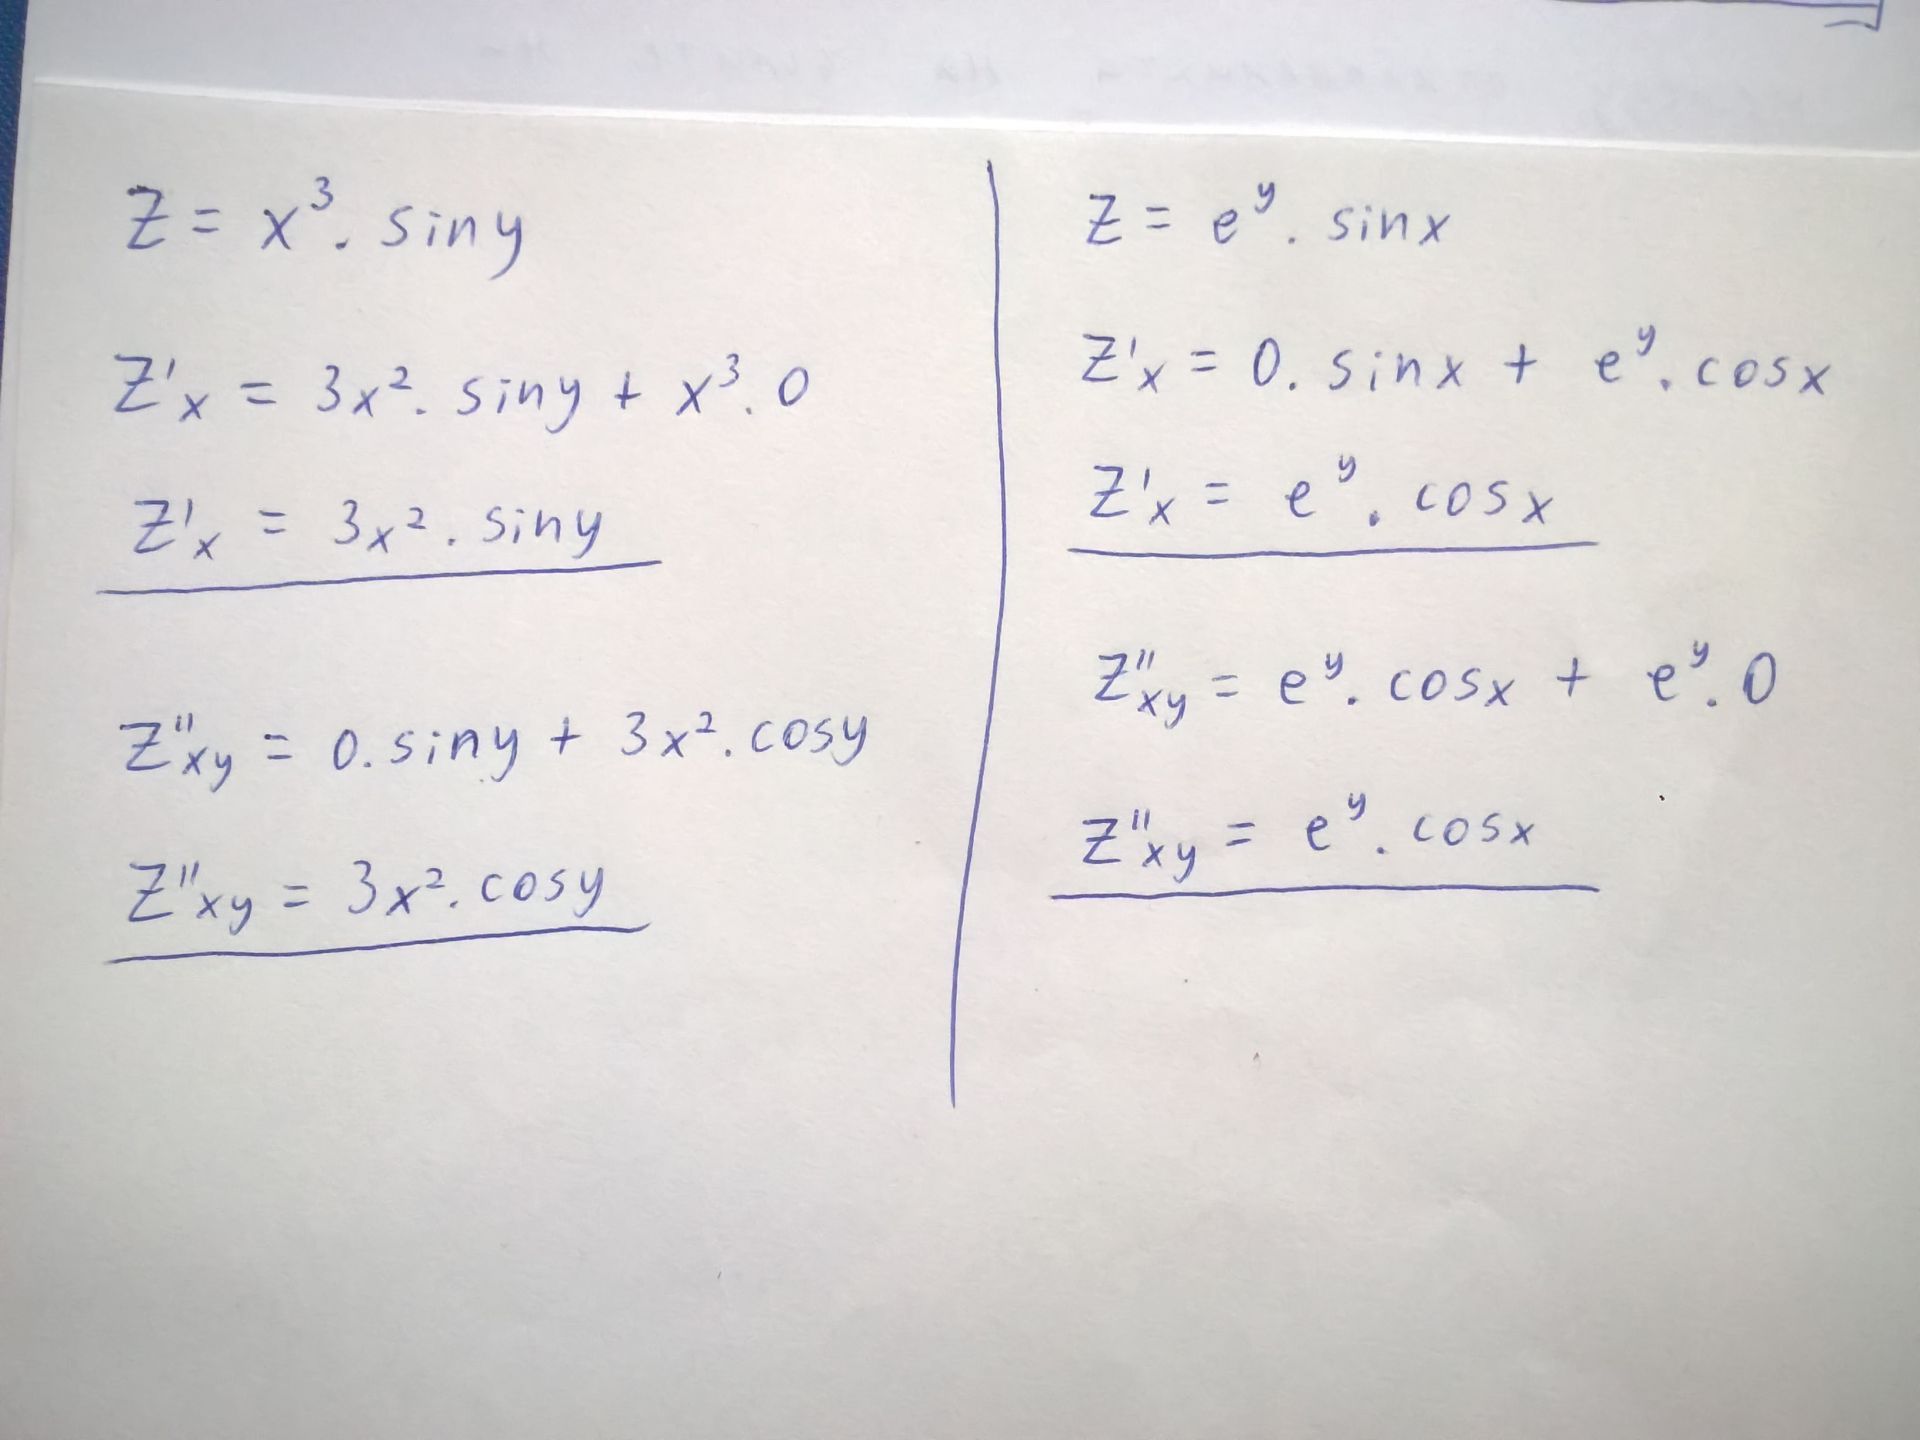 Z = x³. siny
Z'x = 3x². siny + x³. 0
Z'x = 3x². siny
Z"xy = 0. siny + 3x². cosy
Z"xy = 3x². cosy
Z = eʸ. sinx
Z'x = 0. sinx + eʸ. cosx
Z'x = eʸ. cosx
Z"xy = eʸ. cosx + eʸ. 0
Z"xy = eʸ. cosx